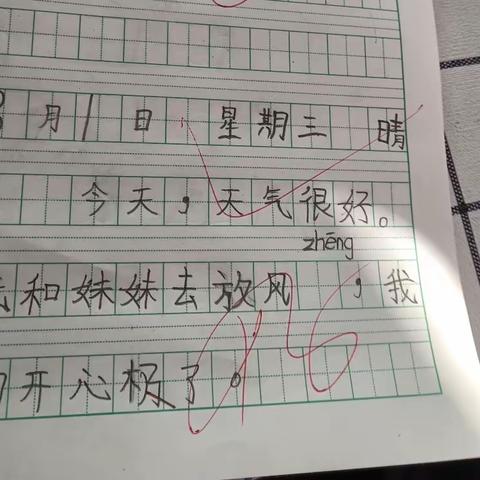 月1日 星期三 晴
今天，天气很好。
zhēng
和妹妹去放风 ，我
开心极了。